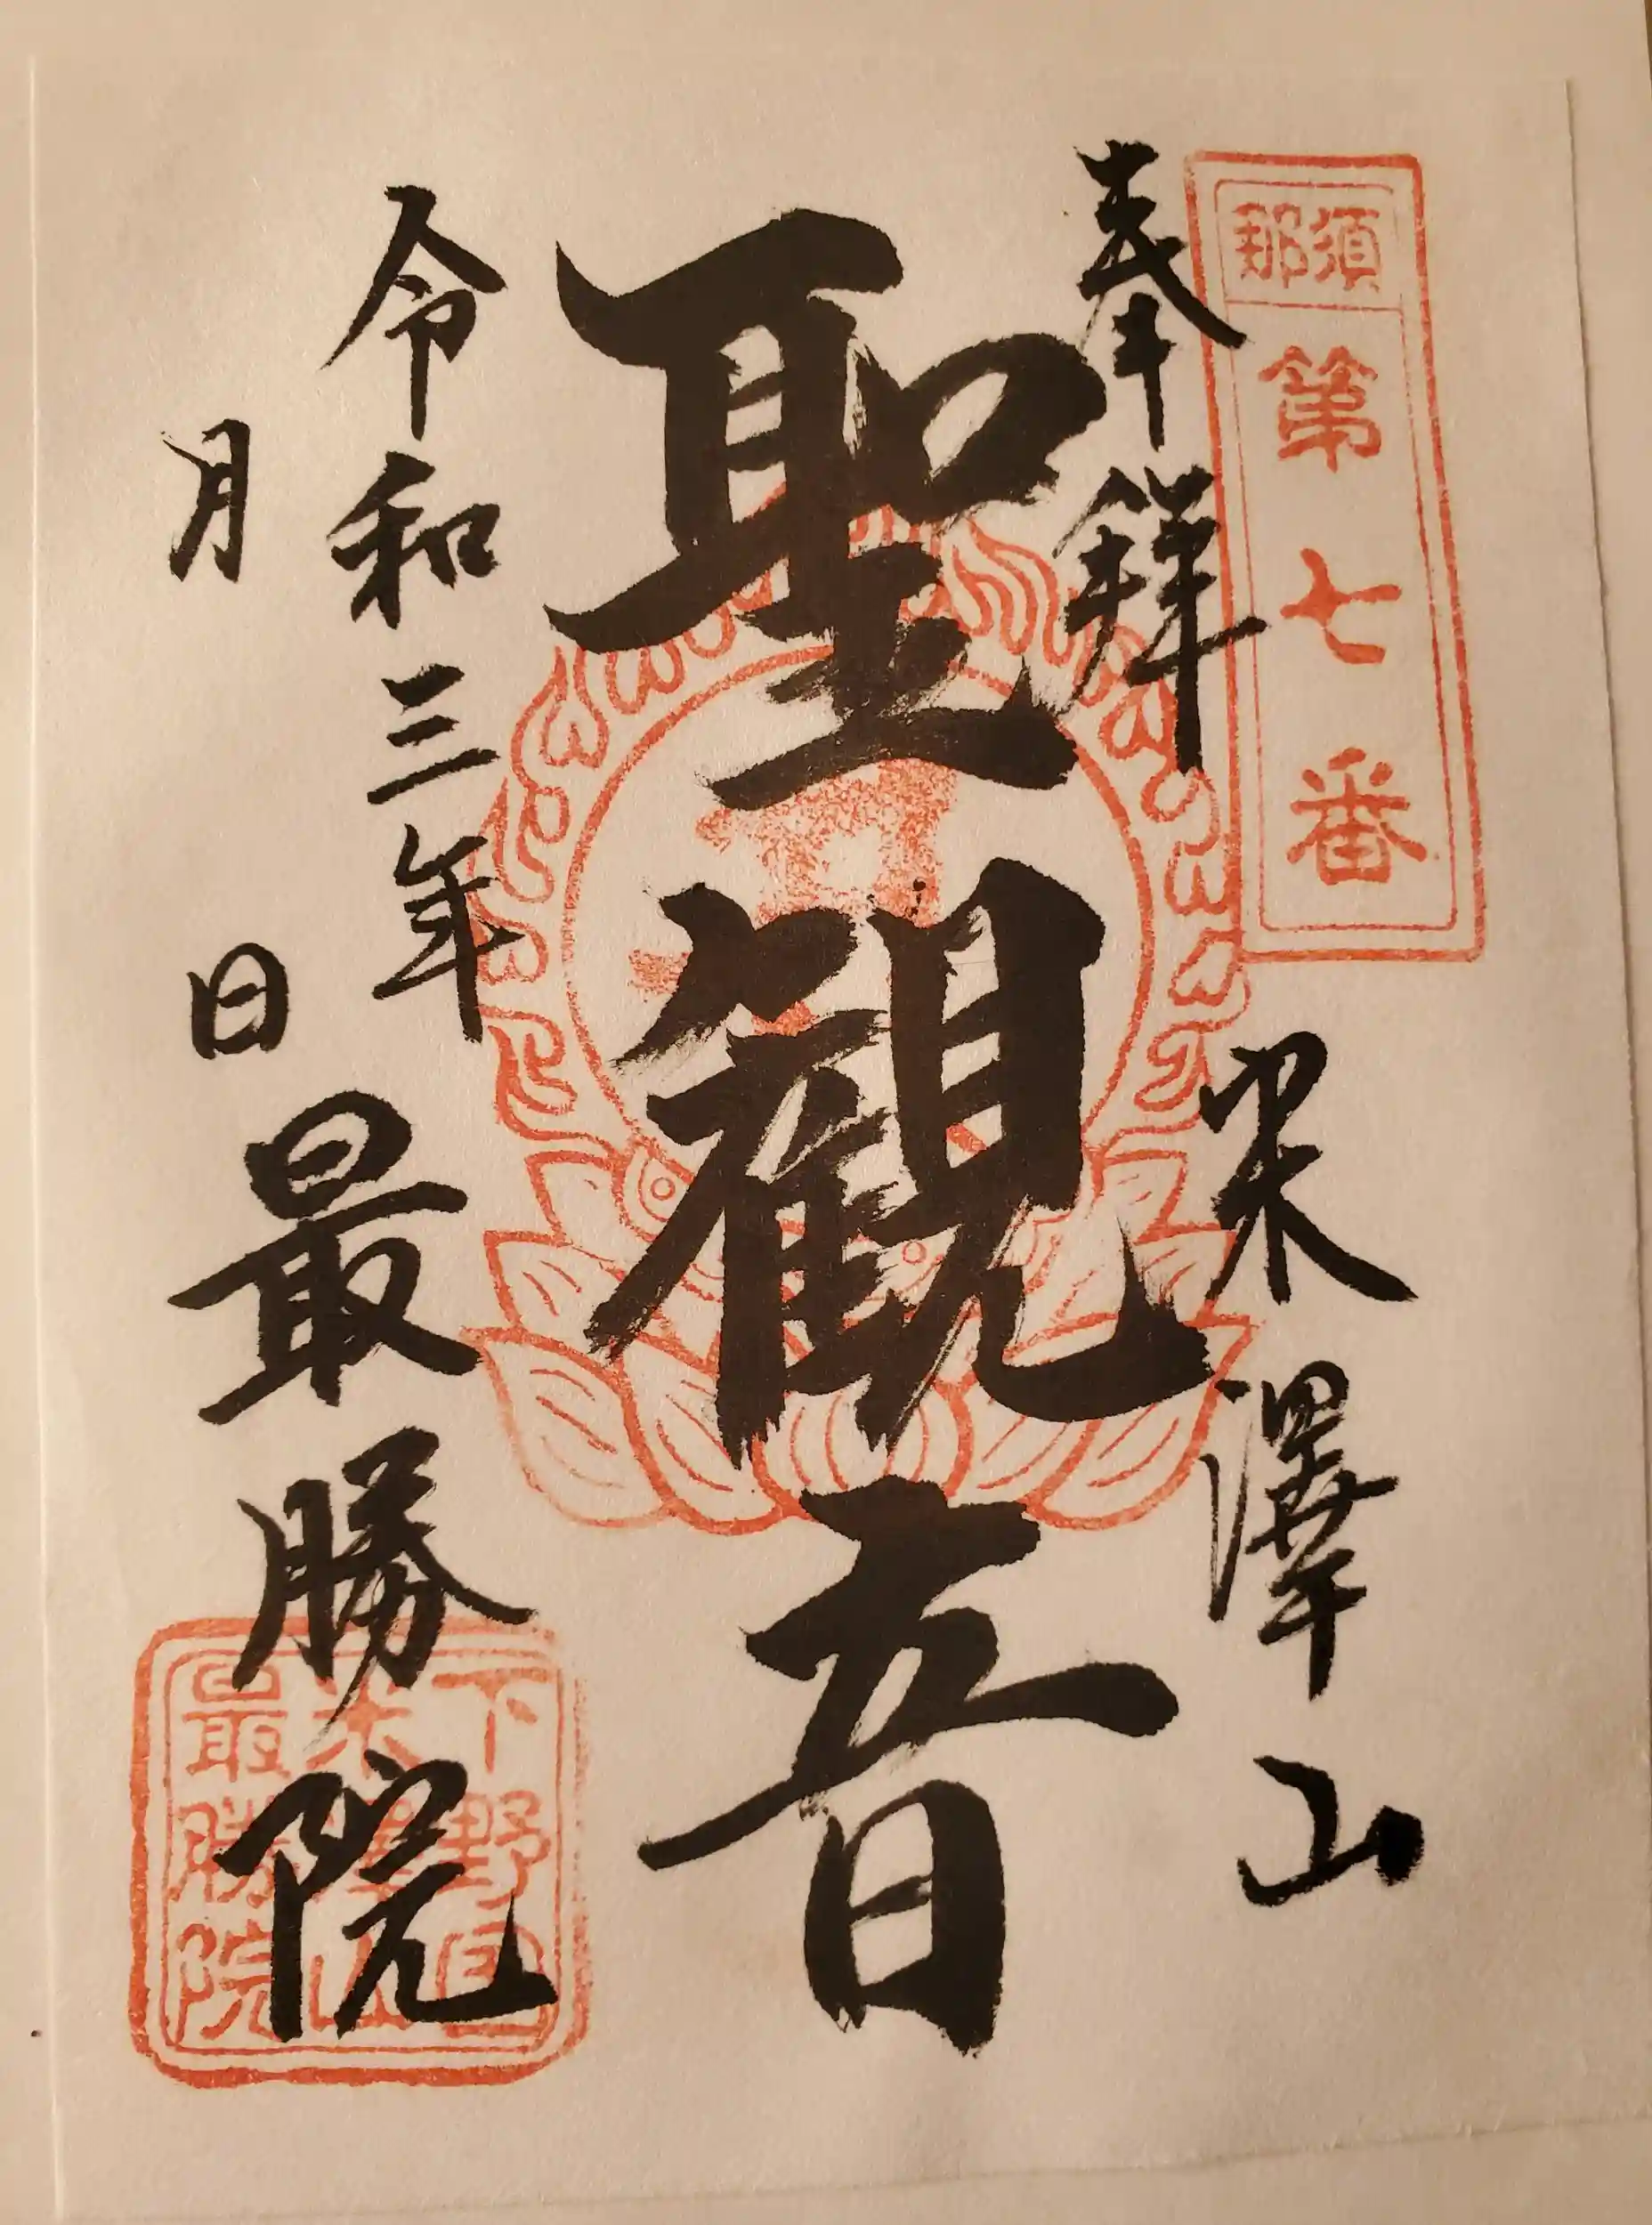 那須
第七番
奉拜
梁澤山
聖観音
令和三年
月 日
最勝院
下野国
最勝院